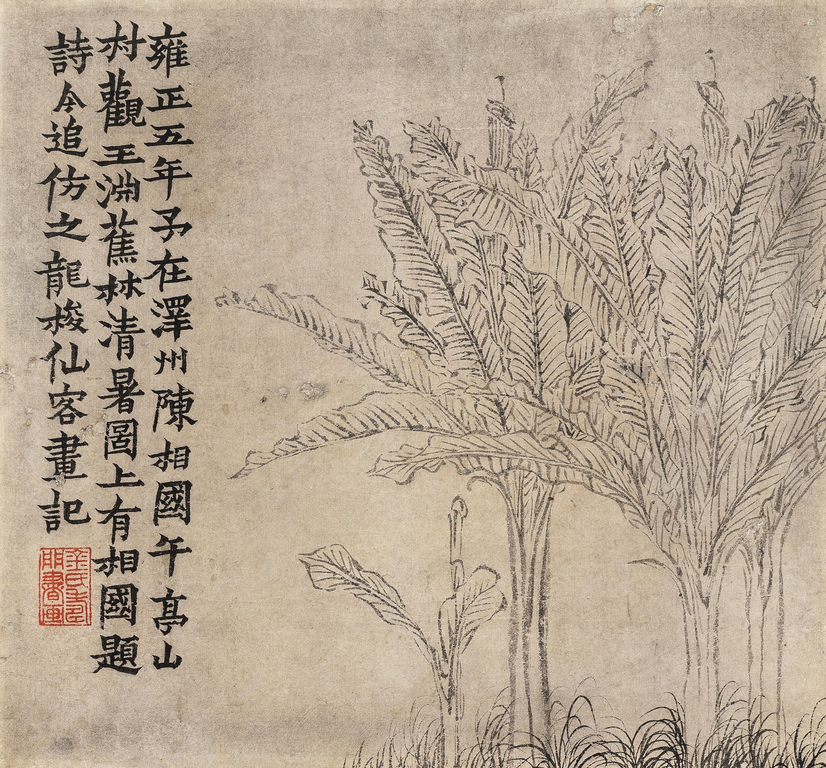 雍正五年予在澤州陳相國午亭山
村觀王淵蕉林清暑圖上有相國題
詩今追仿之龍梭仙客畫記